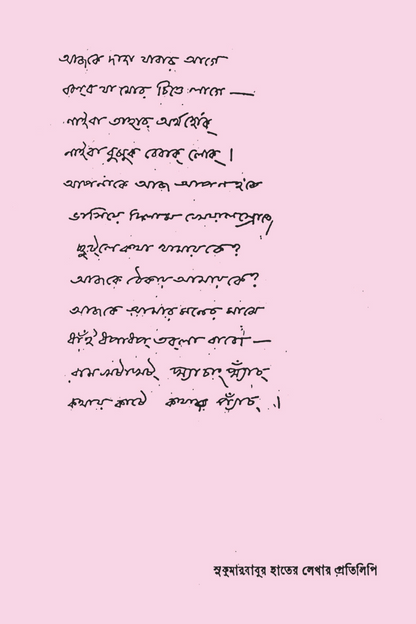 আজকে দাদা যাবার আগে
বলব যা মোর চিত্তে লাগে —
নাইবা তাহার অর্থ হোক্
নাইবা বুঝুক্ বেবাক্ লোক।
আপনাকে আজ আপন হ'তে
ভাসিয়ে দিলাম খেয়ালস্রোতে,
ছুট্‌লে কথা থামায় কে?
আজকে ঠেকায় আমায় কে?
আজকে আমার মনের মাঝে
ধাঁই ধপাধপ্ তবলা বাজে —
রাম খটাখট্ ঘ্যাচাং ঘ্যাঁচ্
কথায় কাটে কথার প্যাঁচ্।
সুকুমারবাবুর হাতের লেখার প্রতিলিপি